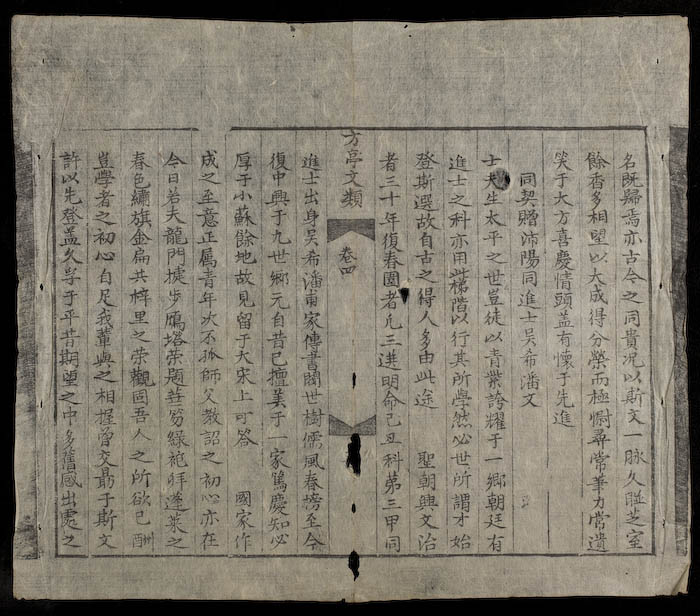 名既歸焉亦古今之同貴況以斯文一脉久聯芝室
餘香多相望以大成得分榮而極慰尋常筆力常遺
笑于大方喜慶情頭蓋有懷于先進
同契贈沛陽同進士吳希潘文
士夫生太平之世豈徒以青紫誇耀于一鄉朝廷有
進士之科亦用此梯階以行其所學然必世所謂才始
登斯選故自古之得人多由此途 聖朝興文治
者三十年復春闈者凡三進明命己丑科第三甲同
方亭文類 卷四
進士出身吳希潘甫家傳書閥世樹儒風春榜至今
復中興于九世鄉元自昔已擅美于一家篤慶知必
厚于小蘇餘地故見留于大宋上可答 國家作
成之至意正厲青年次不孤師父教詔之初心亦在
今日若夫龍門捷步鴈塔榮題莊笏綠袍拜蓬萊之
春色繡旗金扁共梓里之榮觀固吾人之所欲已酬
豈學者之初心自足我輩與之相握曾交最于斯文
許以先登盖久孚于平昔期望之中多舊感出處之